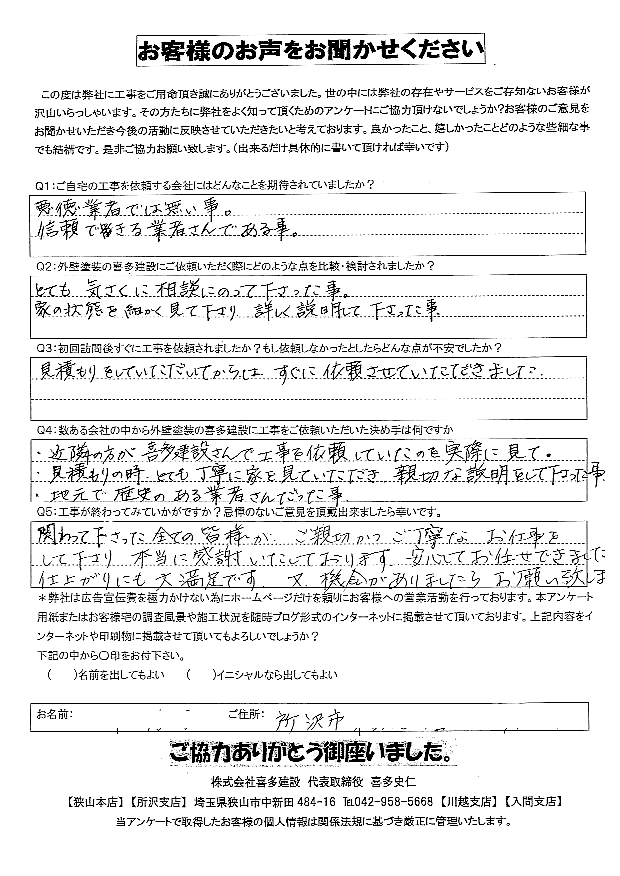 お客様のお声をお聞かせください
この度は弊社に工事をご用命頂き誠にありがとうございました。世の中には弊社の存在やサービスをご存知ないお客様が
沢山いらっしゃいます。その方たちに弊社をよく知って頂くためのアンケートにご協力頂けないでしょうか?お客様のご意見を
お聞かせいただき今後の活動に反映させていただきたいと考えております。良かったこと、嬉しかったことどのような些細な事
でも結構です。是非ご協力お願い致します。(出来るだけ具体的に書いて頂ければ幸いです)
Q1:ご自宅の工事を依頼する会社にはどんなことを期待されていましたか?
悪徳業者では無い事。
信頼できる業者さんである事。
Q2:外壁塗装の喜多建設にご依頼いただく際にどのような点を比較・検討されましたか?
とても 気さくに相談にのって下さった事。
家の状態を細かく見て下さり 詳しく説明して下さった事
Q3:初回訪問後すぐに工事を依頼されましたか?もし依頼しなかったとしたらどんな点が不安でしたか?
見積もりをしていただいてからは すぐに依頼させていただきました。
Q4:数ある会社の中から外壁塗装の喜多建設に工事をご依頼いただいた決め手は何ですか
・近隣の方が喜多建設さんで工事を依頼していたのを実際に見て。
・見積もりの時、とても丁寧に家を見ていただき 親切な説明をして下さった事
・地元で歴史のある業者さんだった事
Q5:工事が終わってみていかがですか?忌憚のないご意見を頂戴出来ましたら幸いです。
関わって下さった全ての皆様が、ご親切かつご丁寧な お仕事を
して下さり 本当に感謝いたしております 安心してお任せできました
仕上がりにも大満足です 又 機会がありましたら お願い致しま
*弊社は広告宣伝費を極力かけない為にホームページだけを頼りにお客様への営業活動を行っております。本アンケート
用紙またはお客様宅の調査風景や施工状況を随時ブログ形式のインターネットに掲載させて頂いております。上記内容をイ
ンターネットや印刷物に掲載させて頂いてもよろしいでしょうか?
下記の中から○印をお付下さい。
( )名前を出してもよい ( )イニシャルなら出してもよい
お名前: ご住所: 所沢市
ご協力ありがとう御座いました。
株式会社喜多建設 代表取締役 喜多史仁
【狭山本店】【所沢支店】 埼玉県狭山市中新田484-16 ℡042-958-5668 【川越支店】【入間支店】
当アンケートで取得したお客様の個人情報は関係法規に基づき厳正に管理いたします。